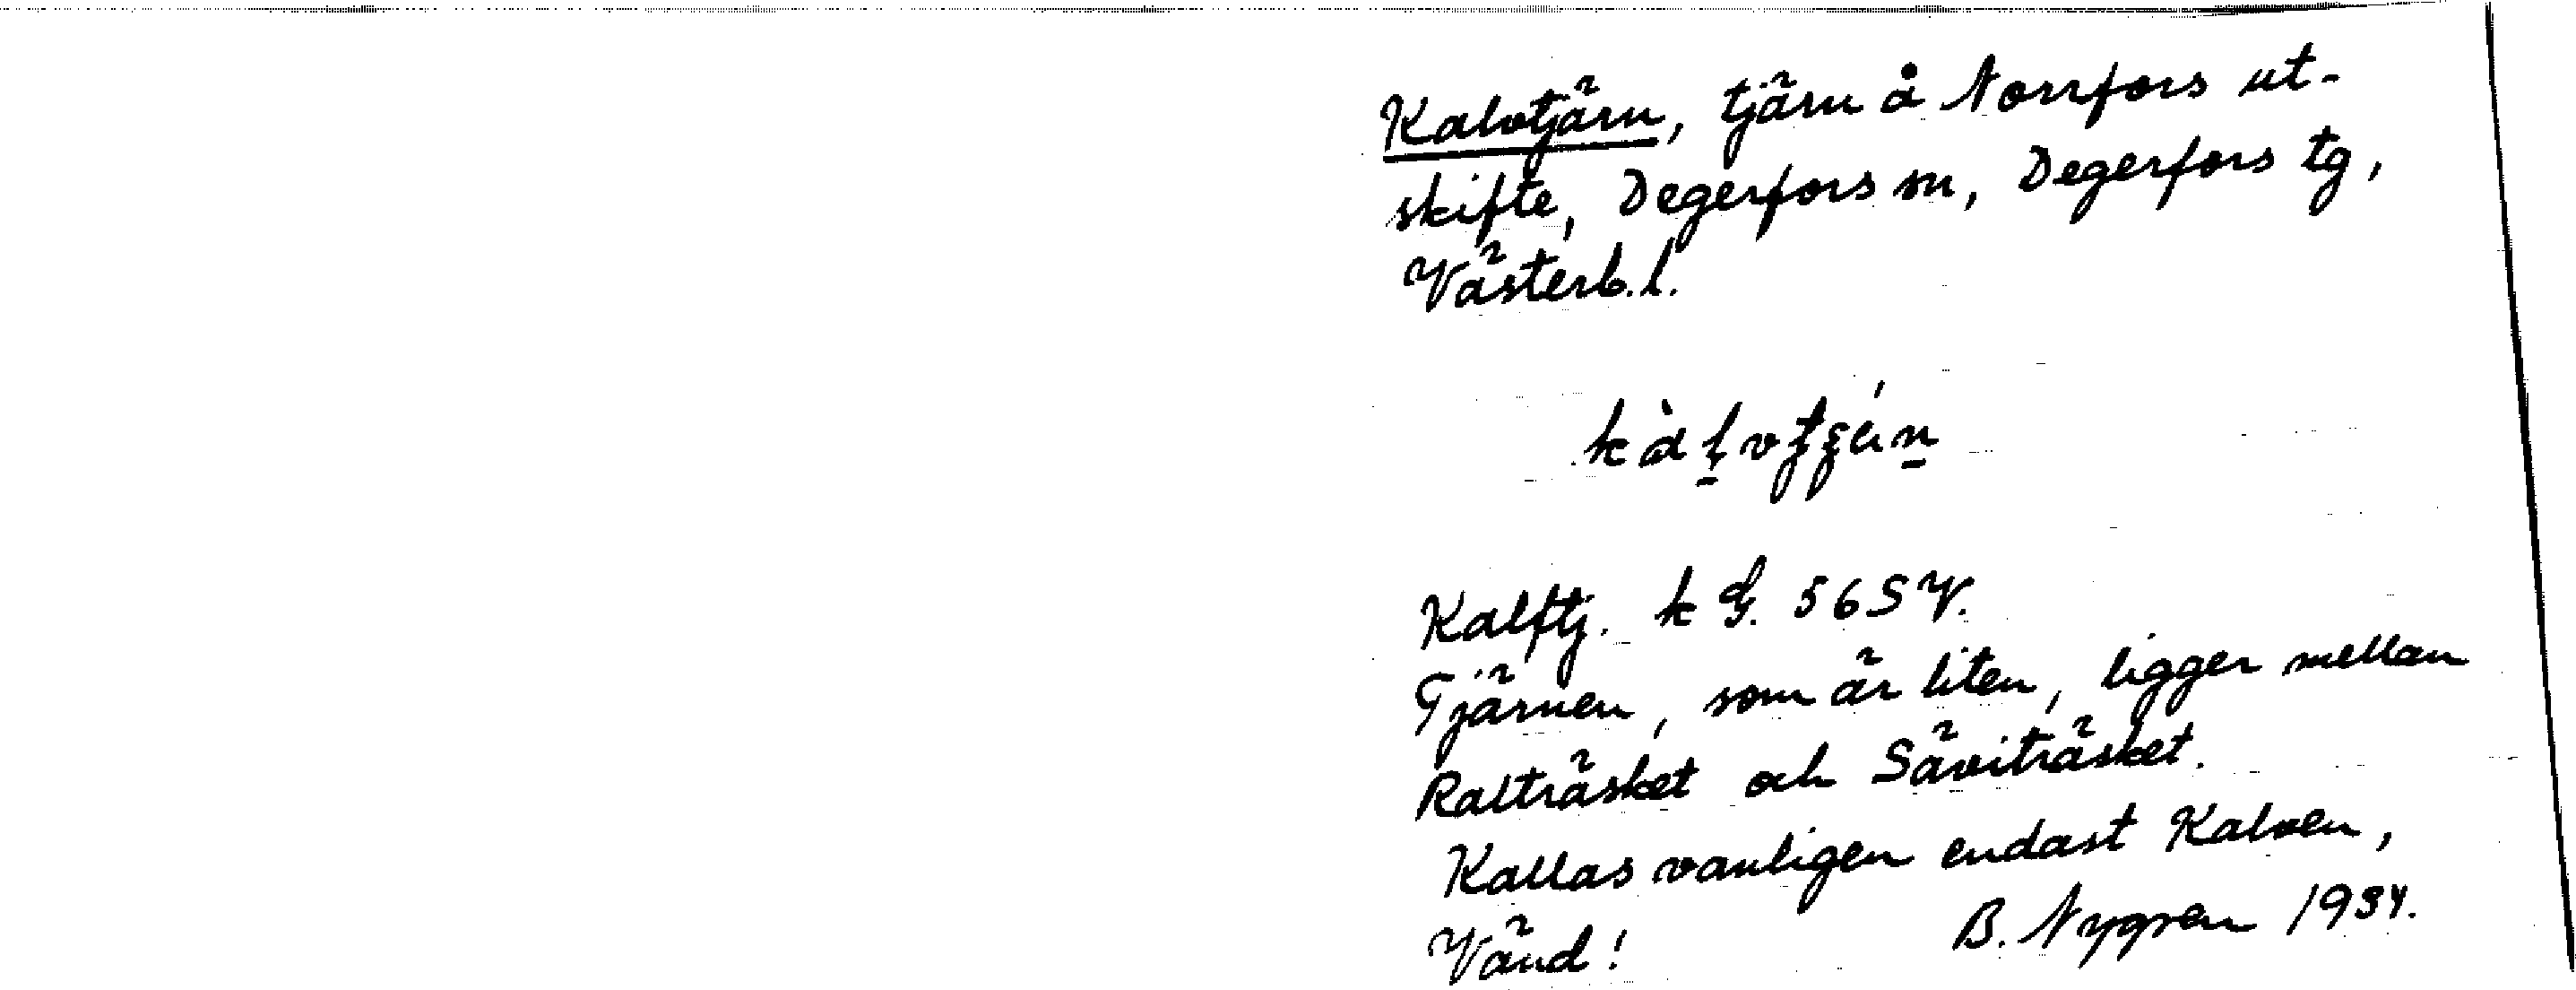 Kalvtjärn, tjärn å Norrfors ut-
skifte, Degerfors sn, Degerfors tg,
Västerb.l.
Kalftj. k G. 56 SV.
Tjärnen, som är liten, ligger mellan
Ralträsket och Säviträsket.
Kallas vanligen endast Kalven,
Vänd! B. Nygren 1934.